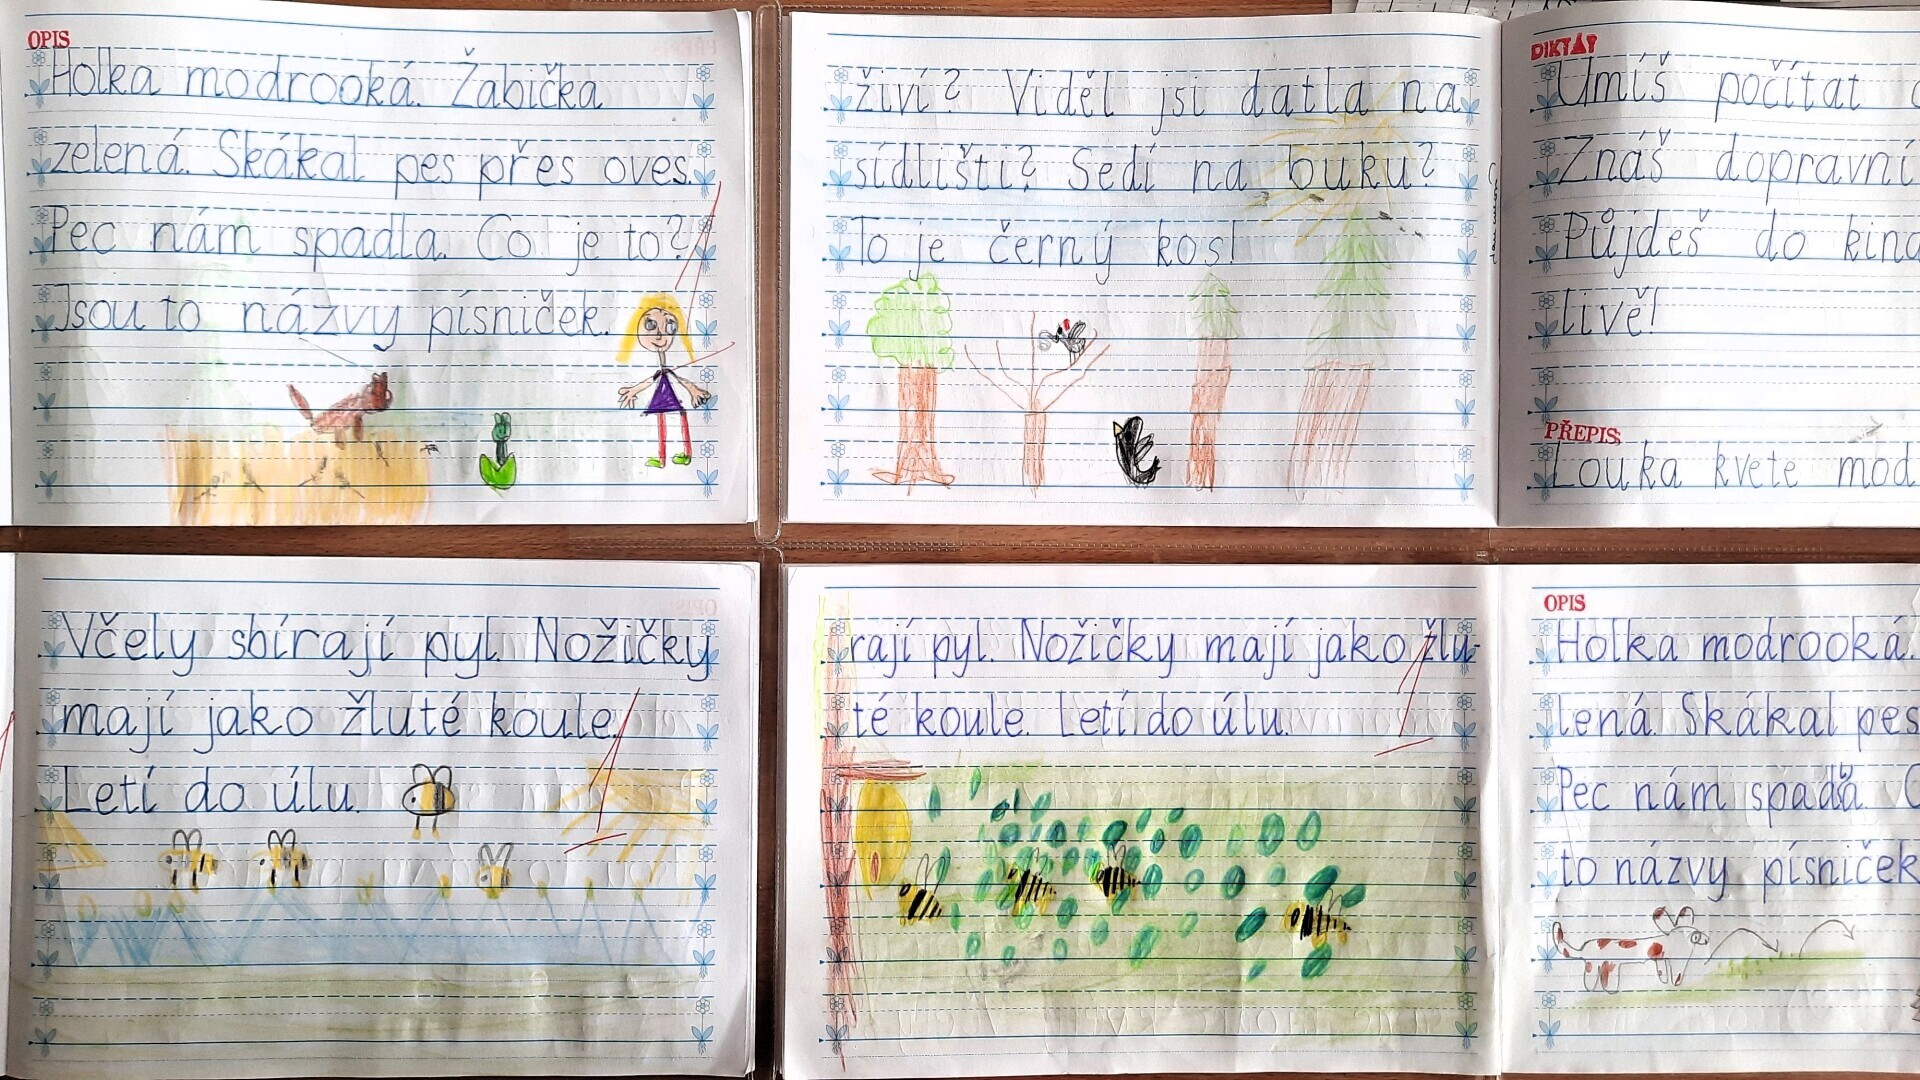 OPIS
Holka modrooká. Žabička
zelená. Skákal pes přes oves.
Pec nám spadla. Co je to?
Jsou to názvy písniček.
živí? Viděl jsi datla na
sídlišti? Sedí na buku?
To je černý kos!
DIKTÁT
Umíš počítat
Znáš dopravní
Půjdeš do kina
livě!
PŘEPIS
Louka kvete mod
Včely sbírají pyl. Nožičky
mají jako žluté koule.
Letí do úlu.
rají pyl. Nožičky mají jako žlu-
té koule. Letí do úlu.
OPIS
Holka modrooká.
lená. Skákal pes
Pec nám
to názvy písniček